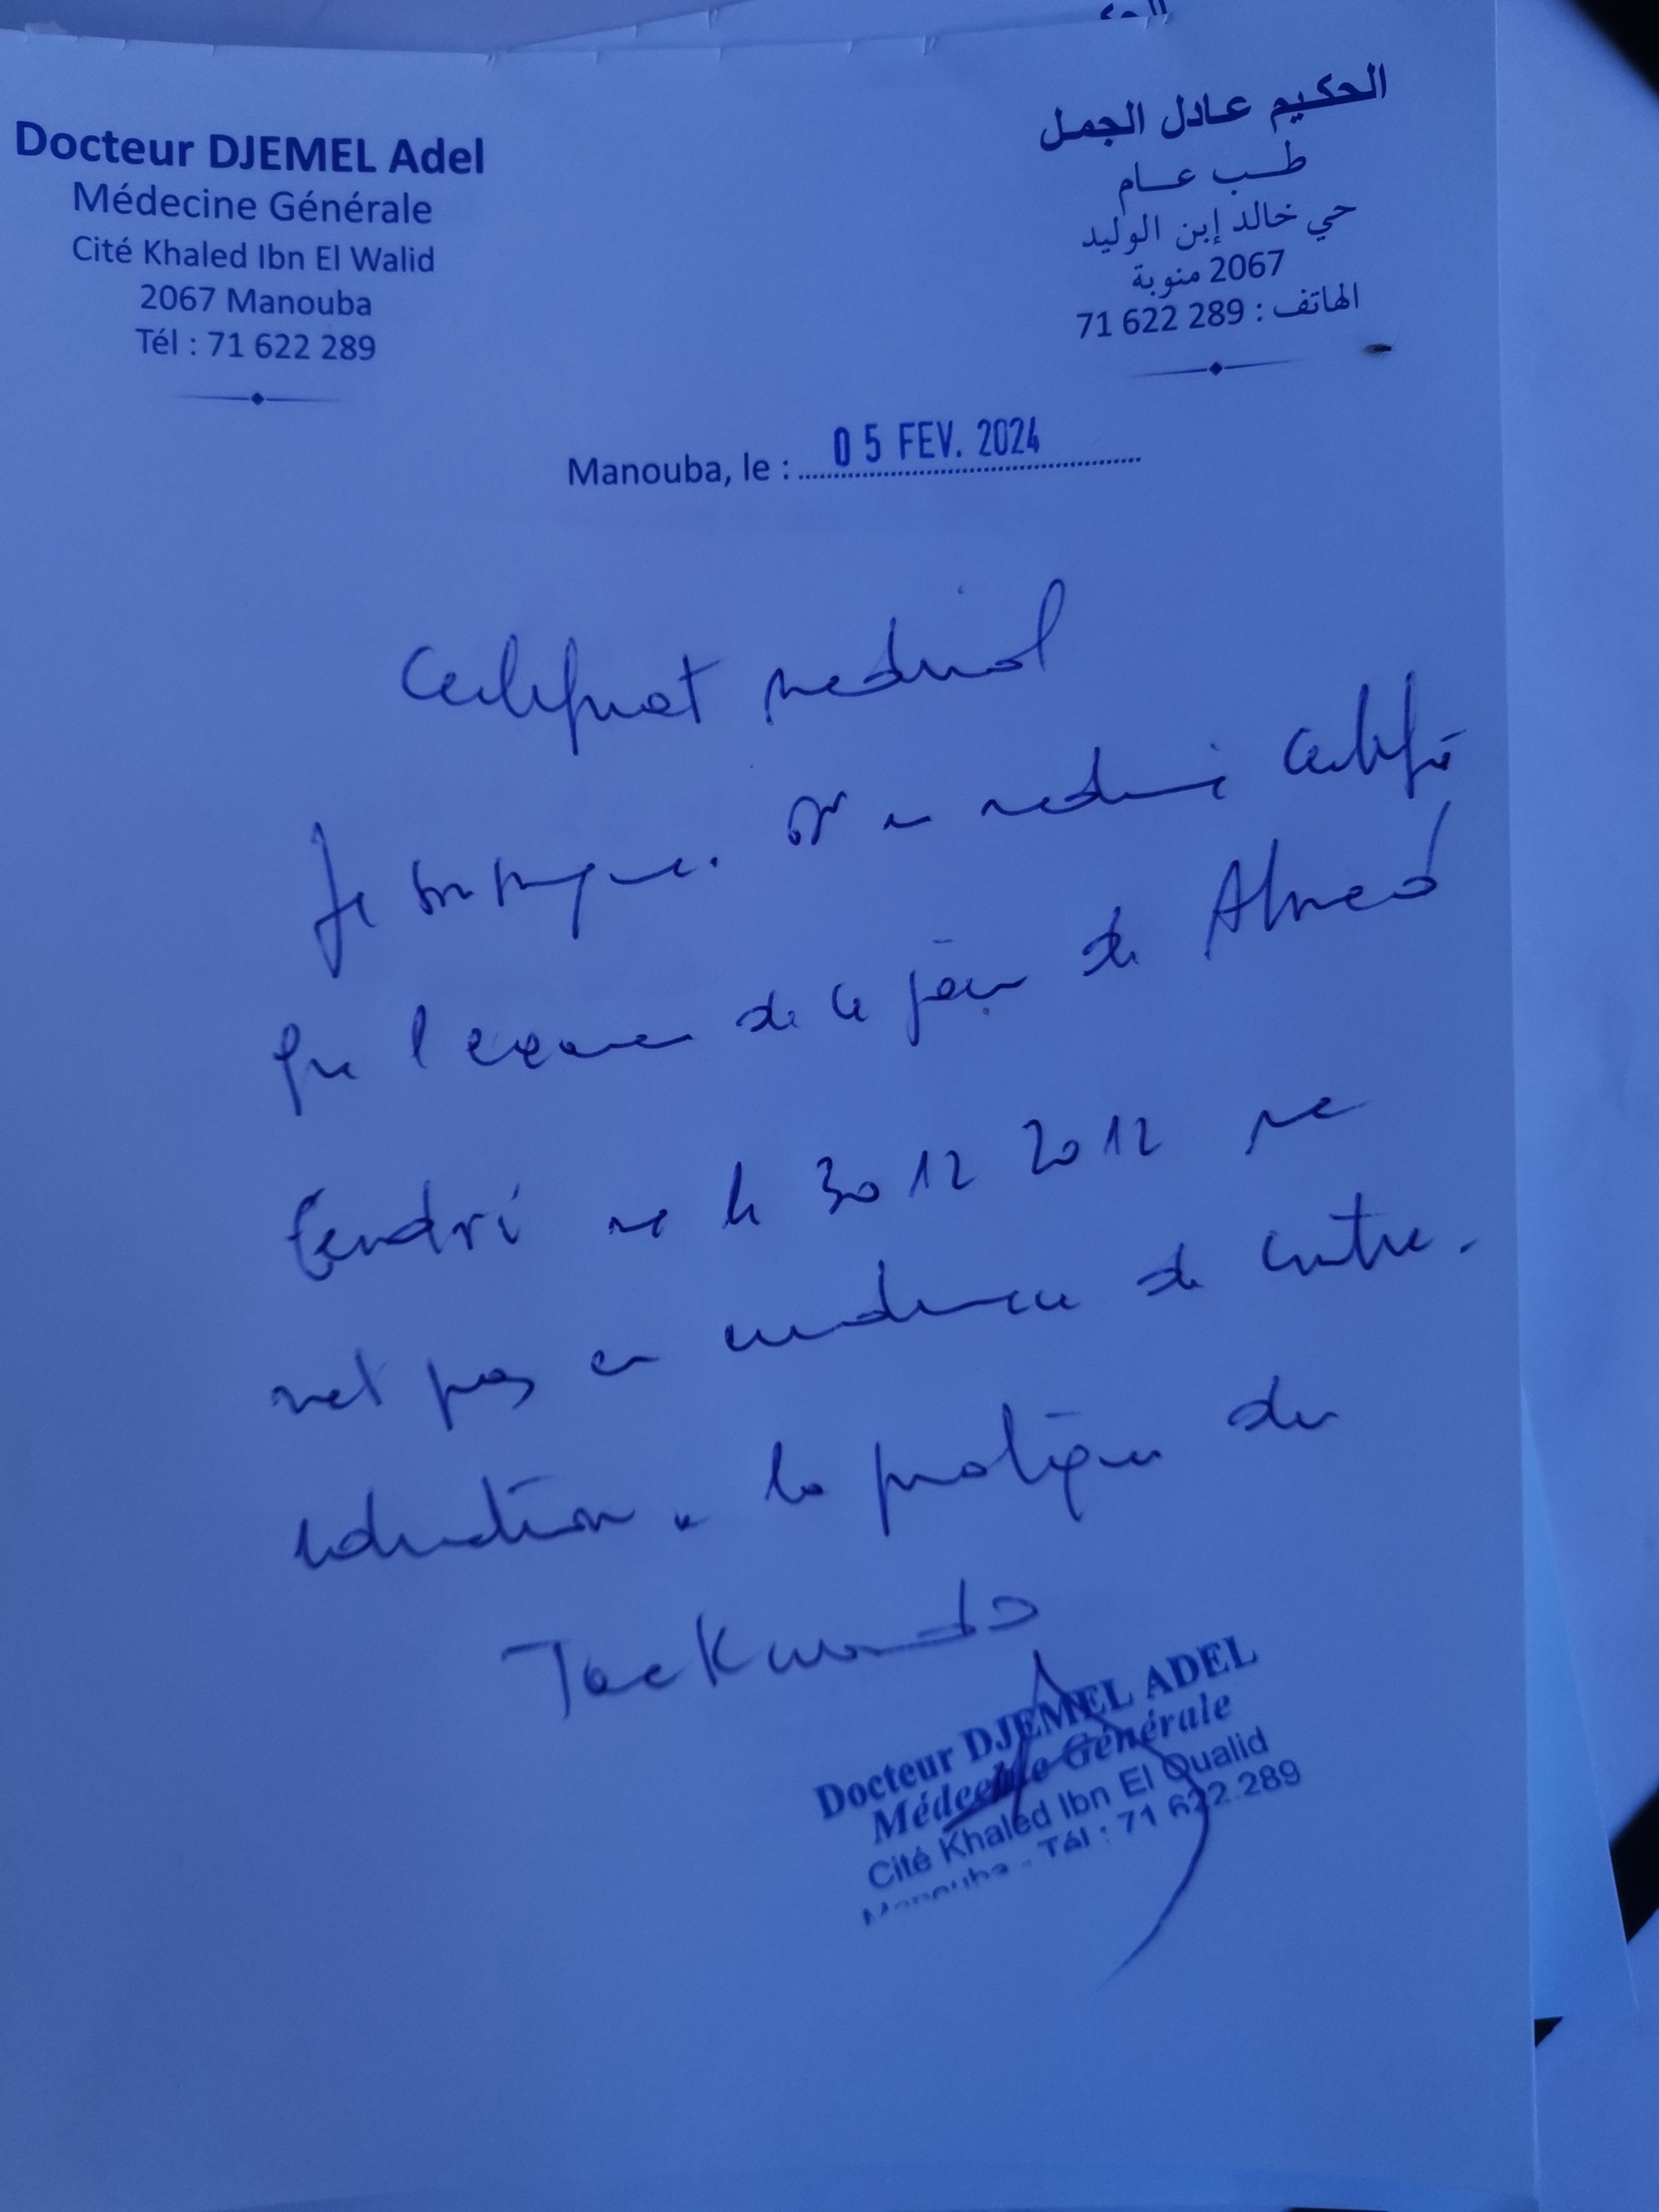 Docteur DJEMEL Adel
Médecine Générale
Cité Khaled Ibn El Walid
2067 Manouba
Tél : 71 622 289
الحكيم عادل الجمل
طب عام
حي خالد إبن الوليد
2067 منوبة
الهاتف : 289 622 71
Manouba, le : 05 FEV. 2024
Certificat medical
Je soussigne. Dr en medecine certifie
que l examen de ce jour de Ahmed
ne le 30 12 2012 ne
met pas en evidence de contre.
indication a la pratique du
Taekwondo
Docteur DJEMEL ADEL
Médecine Générale
Cité Khaled Ibn El Oualid
Manouba - Tél : 71 622.289